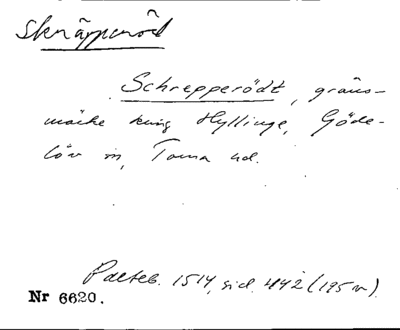 Skräpperöd
Schrepperödt, gräns-
märke kring Hyllinge, Göde-
löv sn, Torna hd.
Palteb. 1514, sid. 442 (195 v).
Nr 6620.